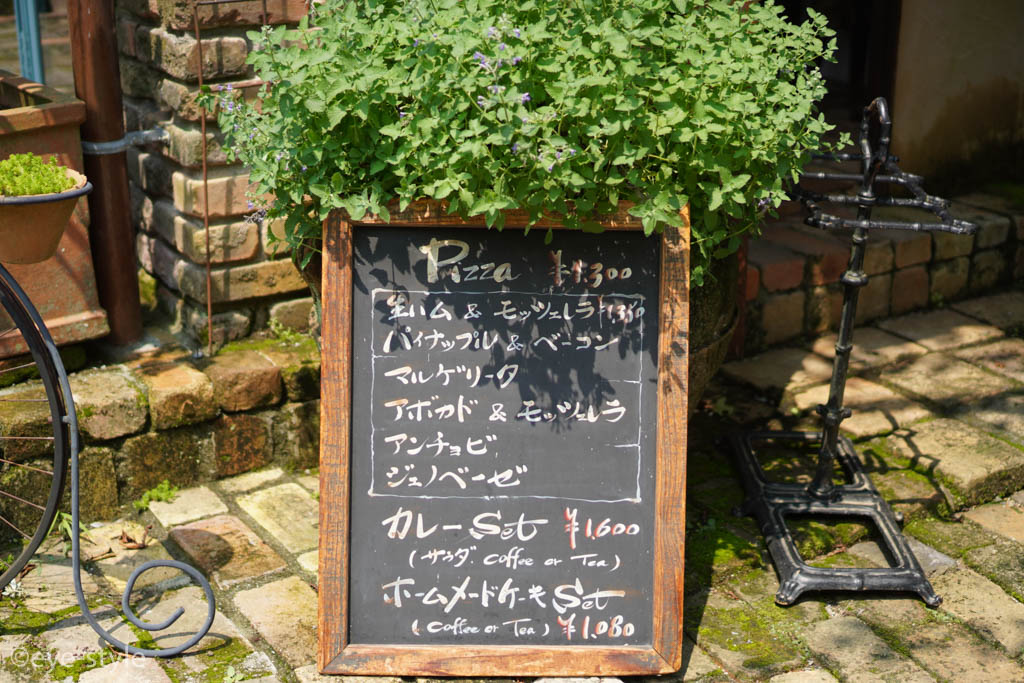 Pizza ¥1,300
生ハム & モッツェレラ ¥1,350
パイナップル & ベーコン
マルゲリータ
アボカド & モッツェレラ
アンチョビ
ジェノベーゼ
カレー Set ¥1,600
(サラダ. Coffee or Tea)
ホームメードケーキ Set
(Coffee or Tea) ¥1,080
©eye-styla